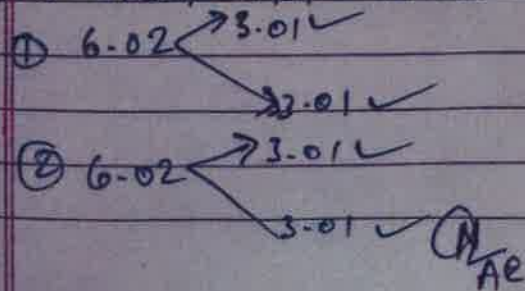 ① 6.02 3.01 ✓
3.01 ✓
② 6.02 3.01 ✓
3.01 ✓